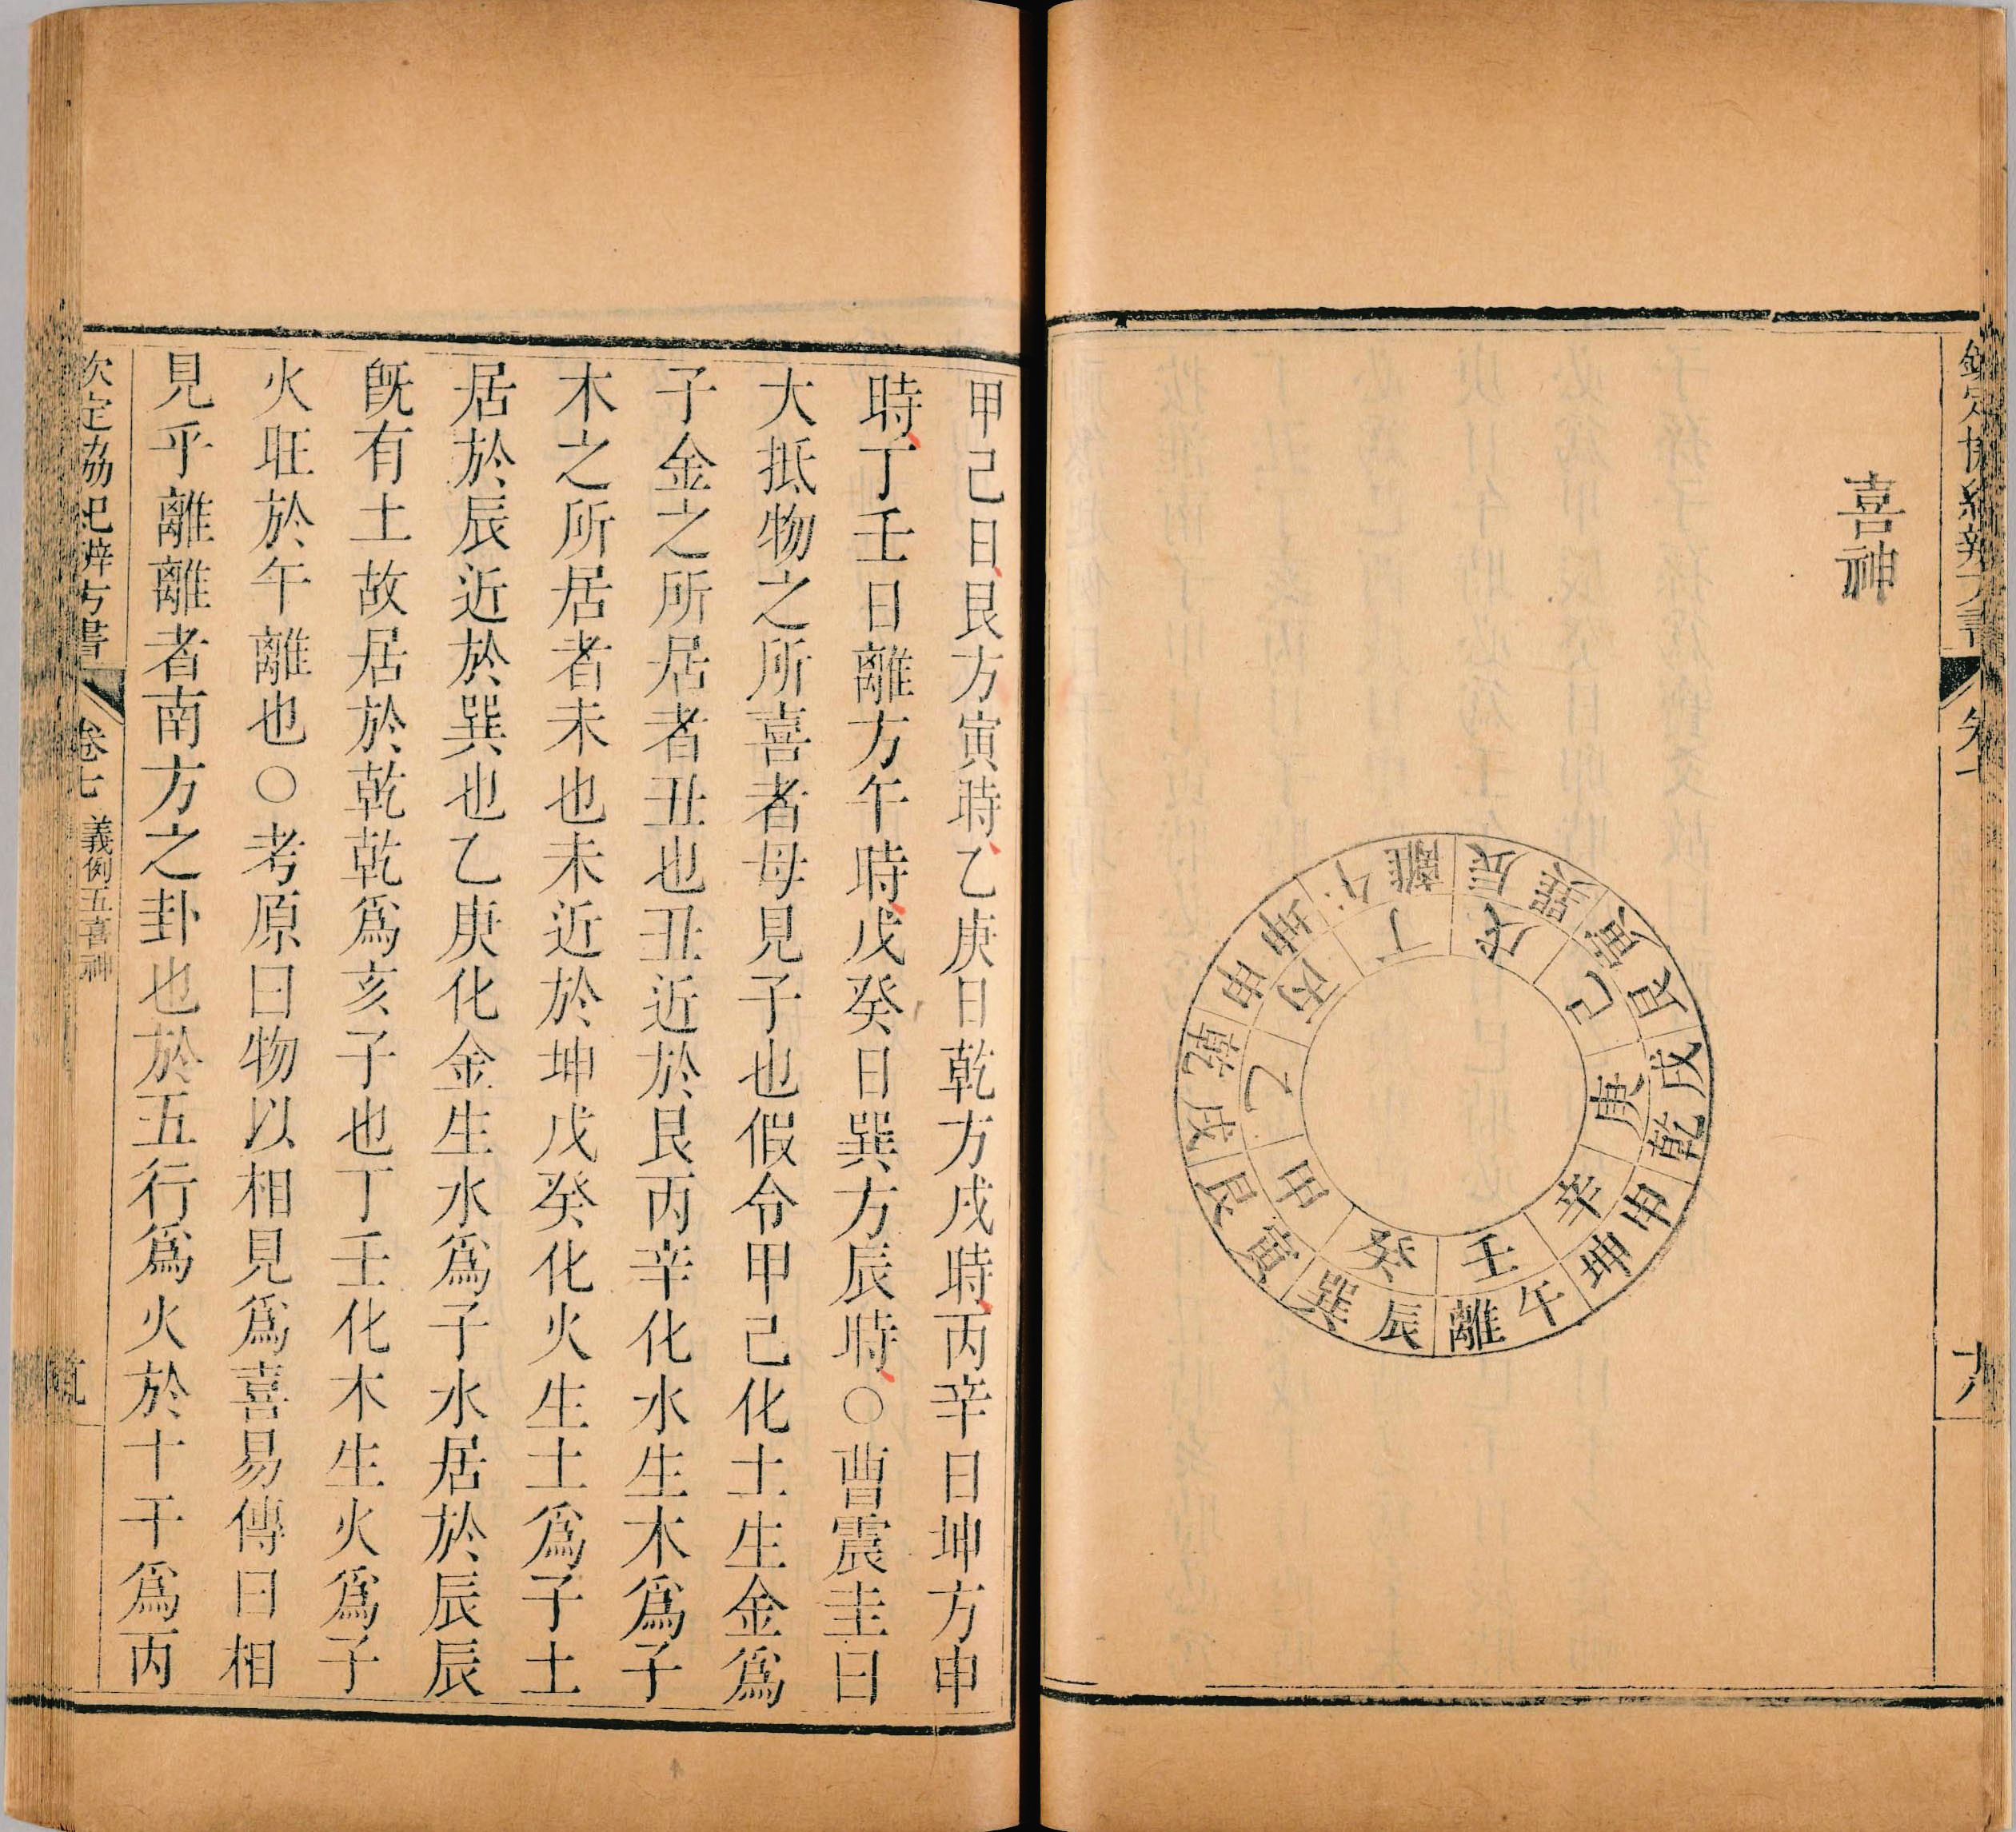 欽定協紀辨方書
卷七
喜神
離午
辰巽
寅艮
戌乾
申坤
午離
辰巽
寅艮
戌乾
申坤
丁
戊
己
庚
辛
壬
癸
甲
乙
丙
甲己日艮方寅時乙庚日乾方戌時丙辛日坤方申
時丁壬日離方午時戊癸日巽方辰時○曹震圭曰
大抵物之所喜者母見子也假令甲己化土生金爲
子金之所居者丑也丑近於艮丙辛化水生木爲子
木之所居者未也未近於坤戊癸化火生土爲子土
居於辰近於巽也乙庚化金生水爲子水居於辰辰
旣有土故居於乾乾爲亥子也丁壬化木生火爲子
火旺於午離也○考原曰物以相見爲喜易傳曰相
見乎離離者南方之卦也於五行爲火於十干爲丙
欽定協紀辨方書
卷七
義例五喜神